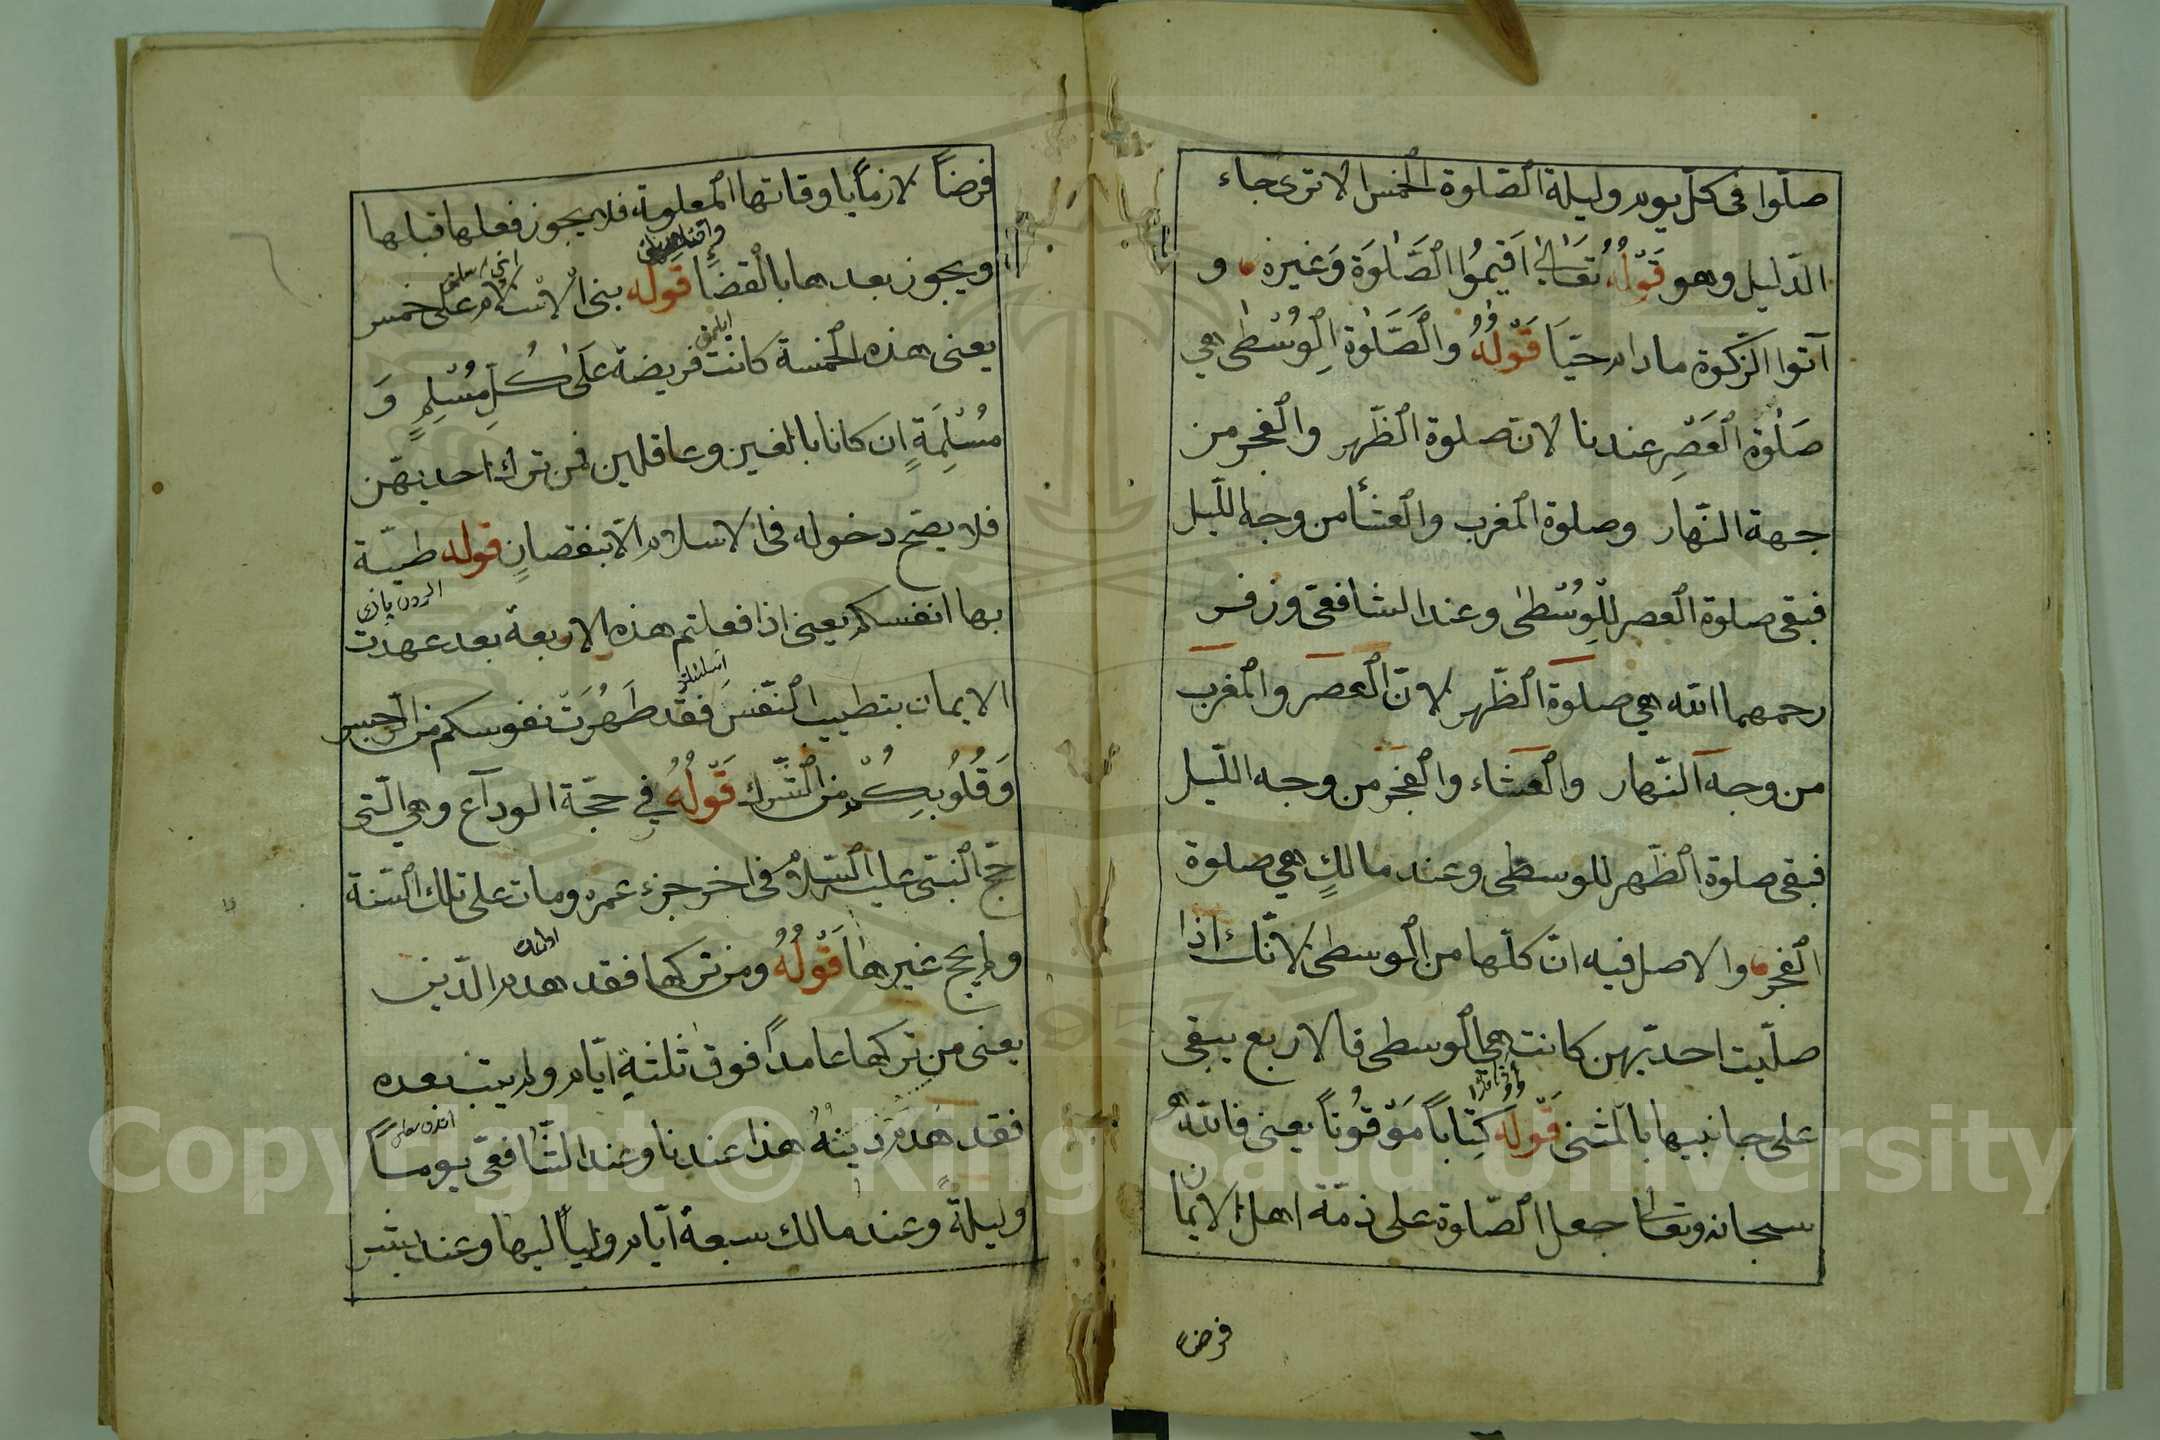 صلّوا فى كلّ يوم وليلة الصّلوة الخمس الا ترى جاء
الدّليل وهو قَوْلُهُ تَعَالىٰ اَقِيمُوا الصَّلٰوةَ وَغَيره و
آتوا الزّكوة مادام حيّاً قَوْلُهُ والصَّلٰوةِ الْوُسْطٰى هي
صَلٰوةُ الْعَصْرِ عندنا لانّ صلوة الظّهر والْفجر من
جهة النّهار وصلوة الْمغرب والْعشأ من وجه اللّيل
فبقى صلوة الْعصر للْوُسْطىٰ وعند الشافعىّ وزفر
رحمهما الله هي صلوة الظّهر لانّ الْعصر والْمغرب
من وجه النّهار والْعشاء والْفجر من وجه اللّيل
فبقى صلوة الظّهر للوسطى وعند مالكٍ هي صلوة
الْفجر والاصل فيه انّ كلّها من الْوسطى لانّك اذا
صلّيت احديهن كانت هي الْوسطى فالاربع يبقى
على جانبيها بالمثنى قَوْلُهُ كِتَاباً مَوْقُوتاً يعنى فالله
سبحانه وتعالى جعل الصّلوة على ذمّة اهل الايمان
فرضاً
فرضاً لازماً باوقاتها الْمعلومة فلا يجوز فعلها قبلها
ويجوز بعدها بالْقضأ قوله بنى الْاسْلام على خمس
يعنى هذه الخمسة كانت فريضة عَلىٰ كُلِّ مُسْلِمٍ وَ
مُسْلِمَةٍ ان كانا بالغين وعاقلين فمن ترك احديهن
فلا يصحّ دخوله فى الاسلام الّا بنقصانٍ قوله طيبة
بها انفسكم يعنى اذا فعلتم هذه الاربعة بعد عهدت
الايمان بتطييب النّفس فقد طَهُرَتْ نفوسكم من الرّجس
وَقُلُوبِكُمْ من الشّرك قَوْلُهُ في حجّة الوداع وهي الّتى
حجّ النّبىّ عليه السّلام فى اخر جزء عمره ومات على تلك السّنة
ولم يحج غيرها قَوْلُهُ ومن تركها فقد هدم الدّين
يعنى من تركها عامداً فوق ثلثةِ ايّام ولم يتب بعده
فقد هَدَمَ دينهُ هذا عندنا وعند الشّافعىّ يوماً
وليلةً وعند مالك سبعة ايّام ولياليها وعند بشر
Copyright © King Saud University
1957